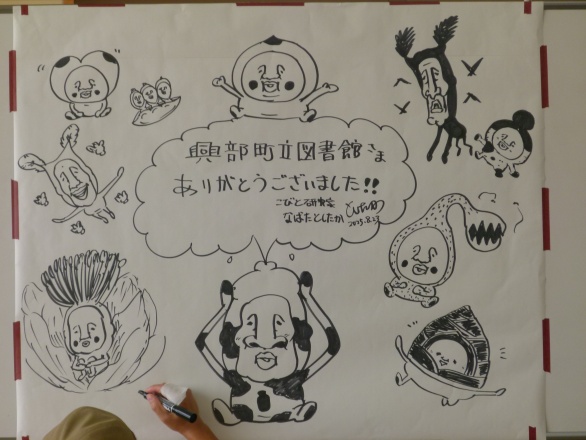 興部町立図書館さま
ありがとうございました!!
こびと研究家
なばたとしたか
2025.8.